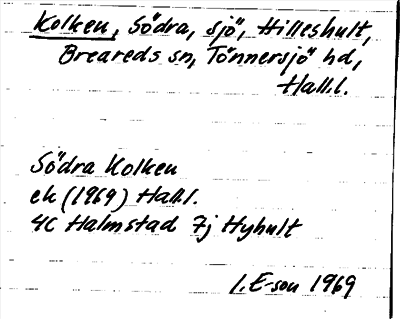 Kolken, Södra, sjö, Hilleshult,
Breareds sn, Tönnersjö hd,
Hall.l.
Södra Kolken
ek (1969) Hall.l.
4C Halmstad 7j Hyhult
I.E-son 1969